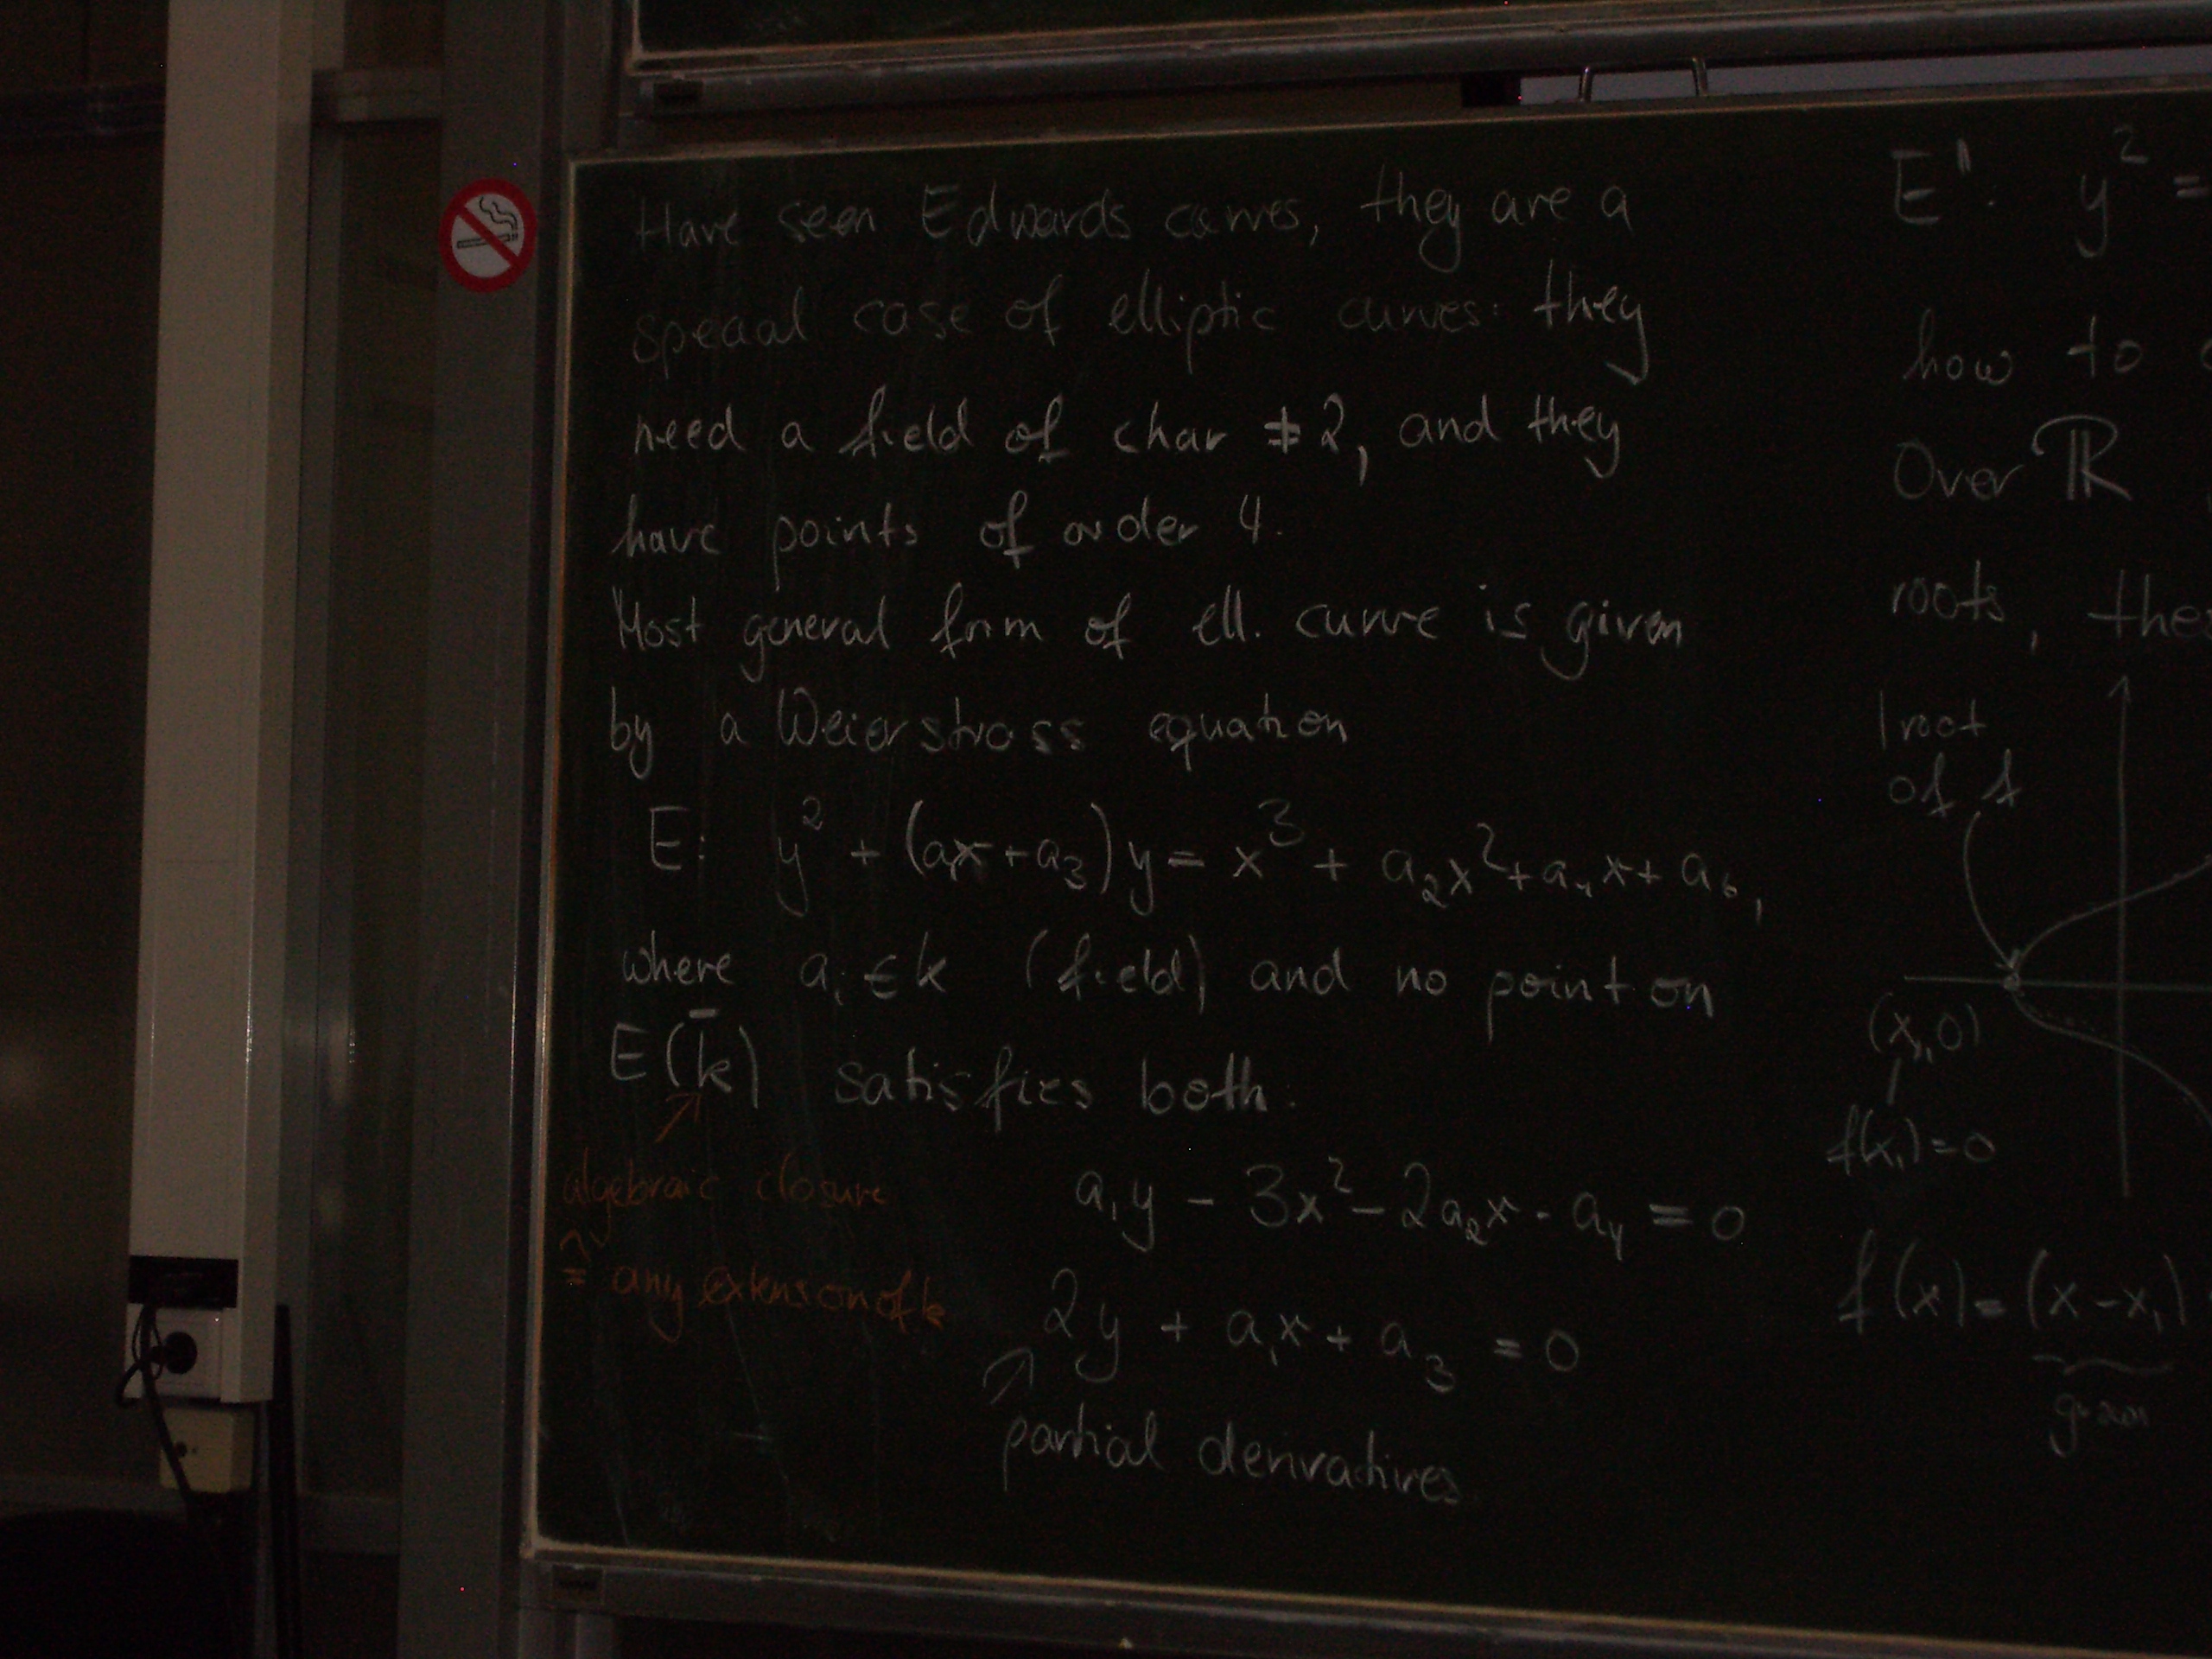 Have seen Edwards curves, they are a
special case of elliptic curves: they
need a field of char ≠ 2, and they
have points of order 4.
Most general form of ell. curve is given
by a Weierstrass equation
E: y² + (a₁x + a₃)y = x³ + a₂x² + a₄x + a₆,
where aᵢ ∈ k (field) and no point on
E(k̄) satisfies both:
algebraic closure
= any extension of k
a₁y - 3x² - 2a₂x - a₄ = 0
2y + a₁x + a₃ = 0
partial derivatives
E': y² =
how to
Over ℝ
roots, the
1 root
of f
(x₁, 0)
f(x₁) = 0
f(x) = (x - x₁)